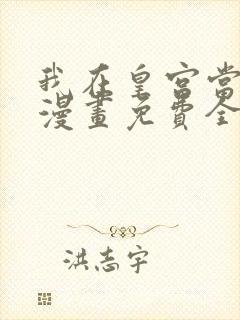 我在皇宫当
漫畫免費全
洪志宇